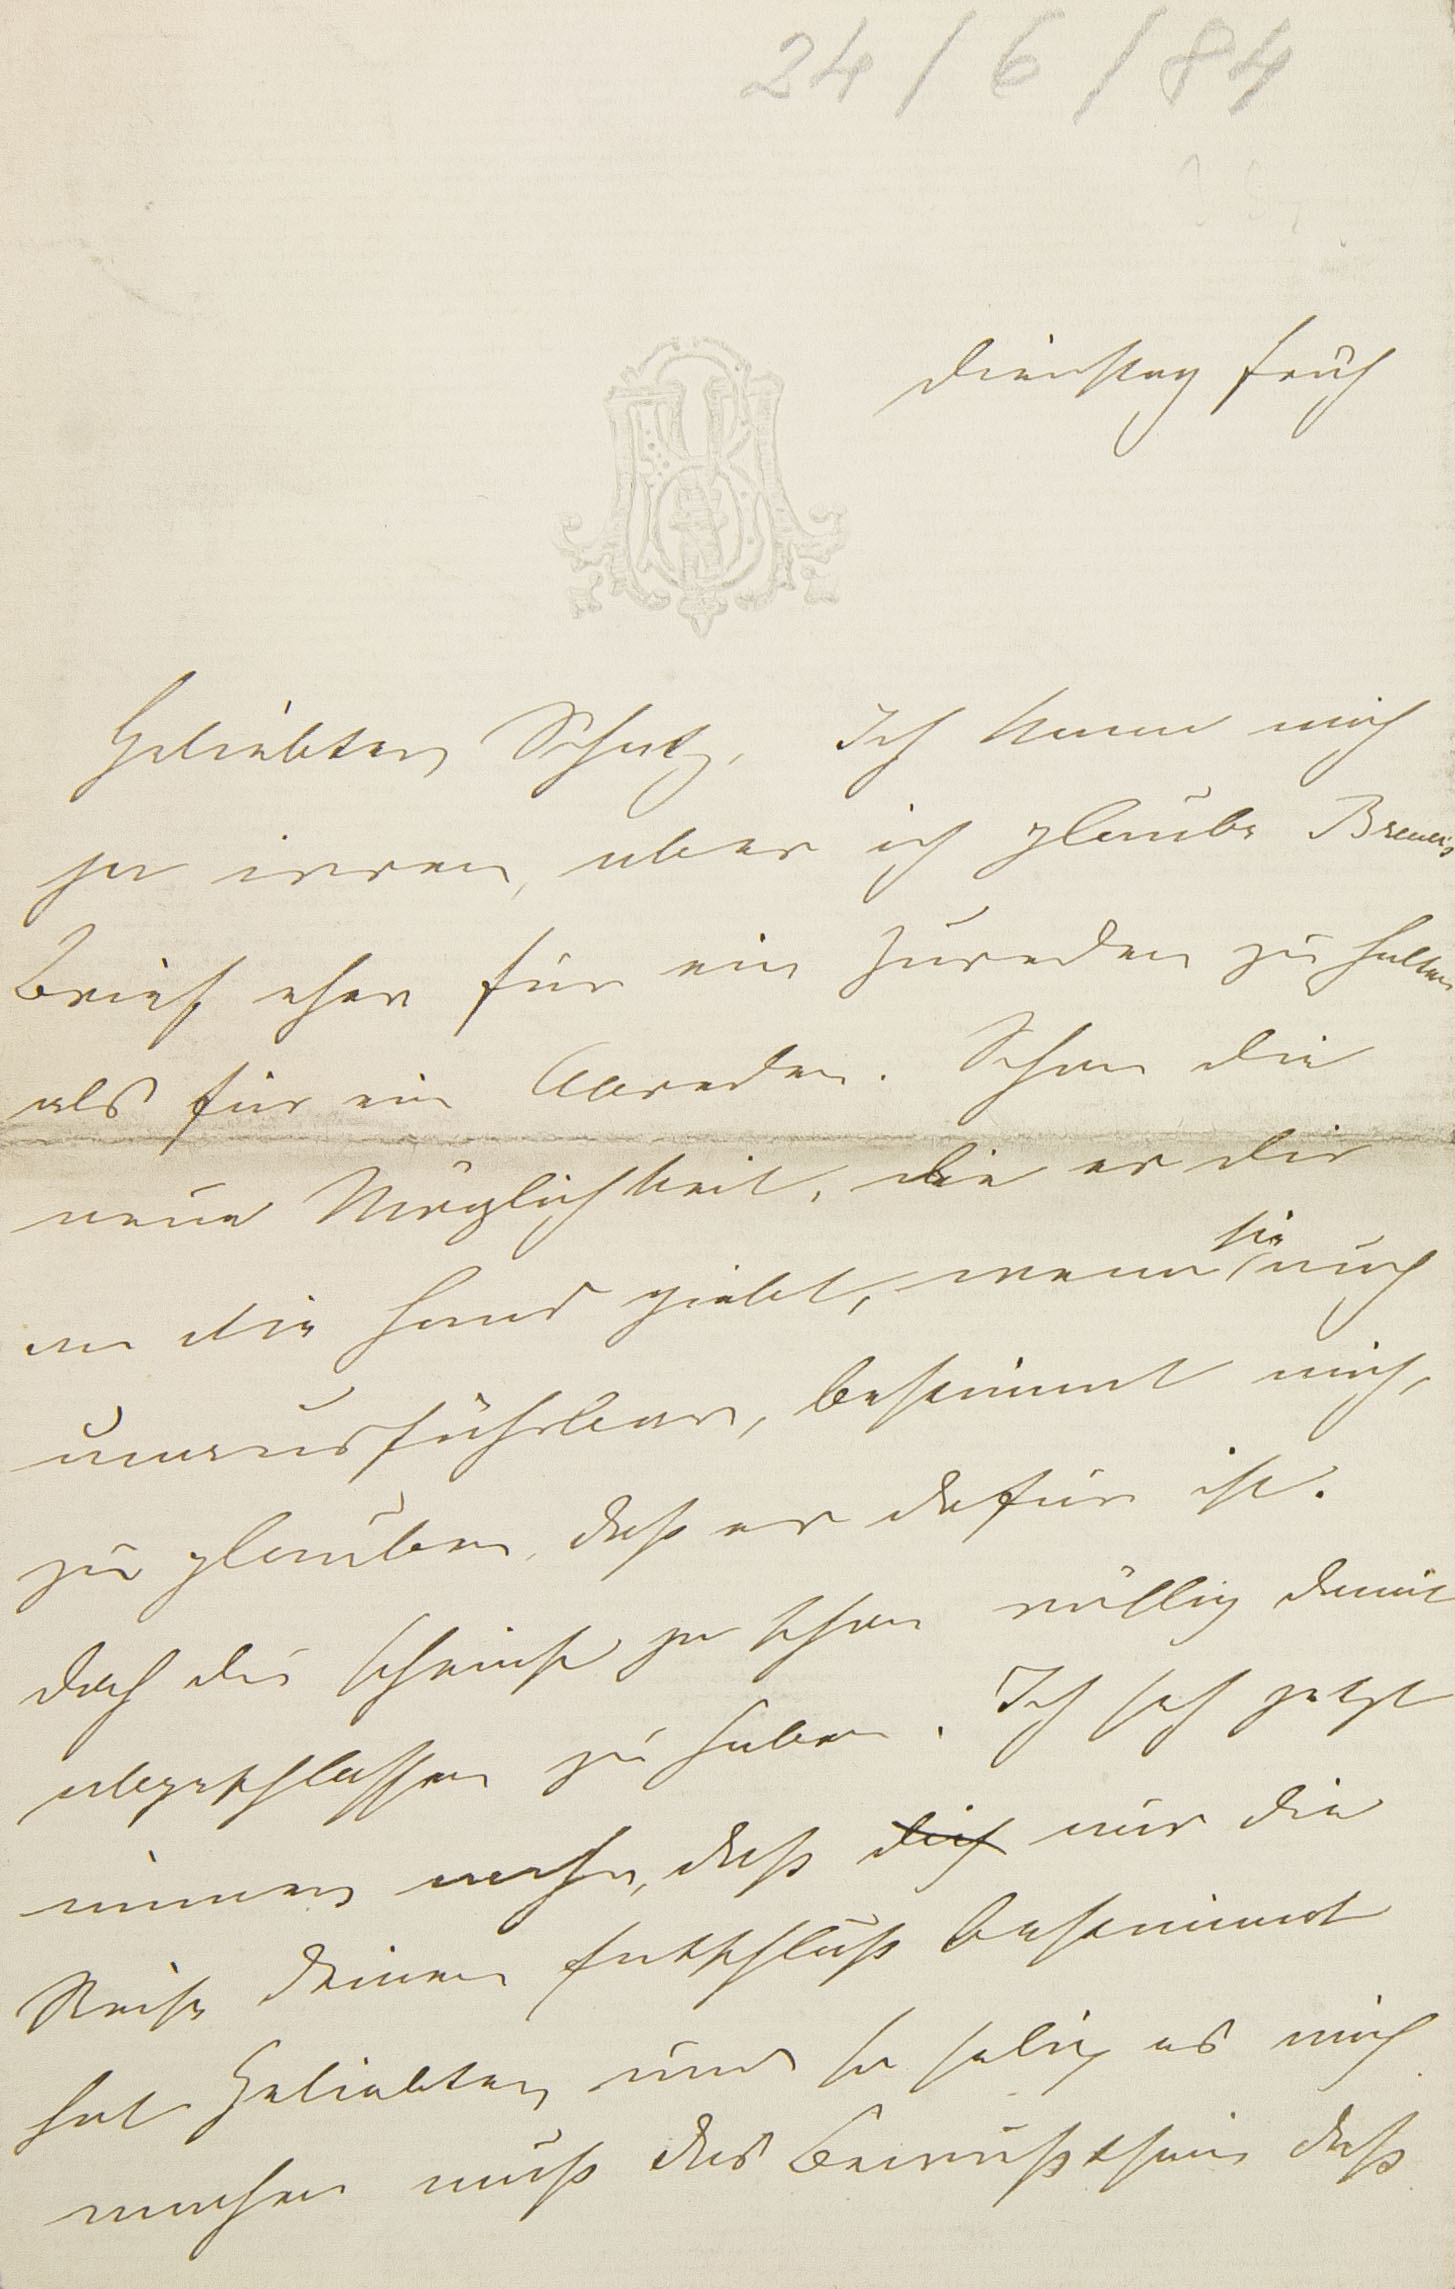 24/6/84
Dienstag früh
Geliebter Schatz. Ich kann mich
ja irren, aber ich glaube Breuers
Brief eher für ein Zureden zu halten
als für ein Abreden. Schon die
neue Möglichkeit, die er dir
an die Hand giebt, wenn sie auch
unausführbar, bestimmt mich,
zu glauben, daß er dafür ist.
Doch du scheinst ja schon völlig damit
abgeschlossen zu haben. Ich seh jetzt
immer mehr, daß dich nur die
Reise deinen Entschluß bestimmt
hat Geliebter, und so selig es mich
machen muß das Bewußtsein daß